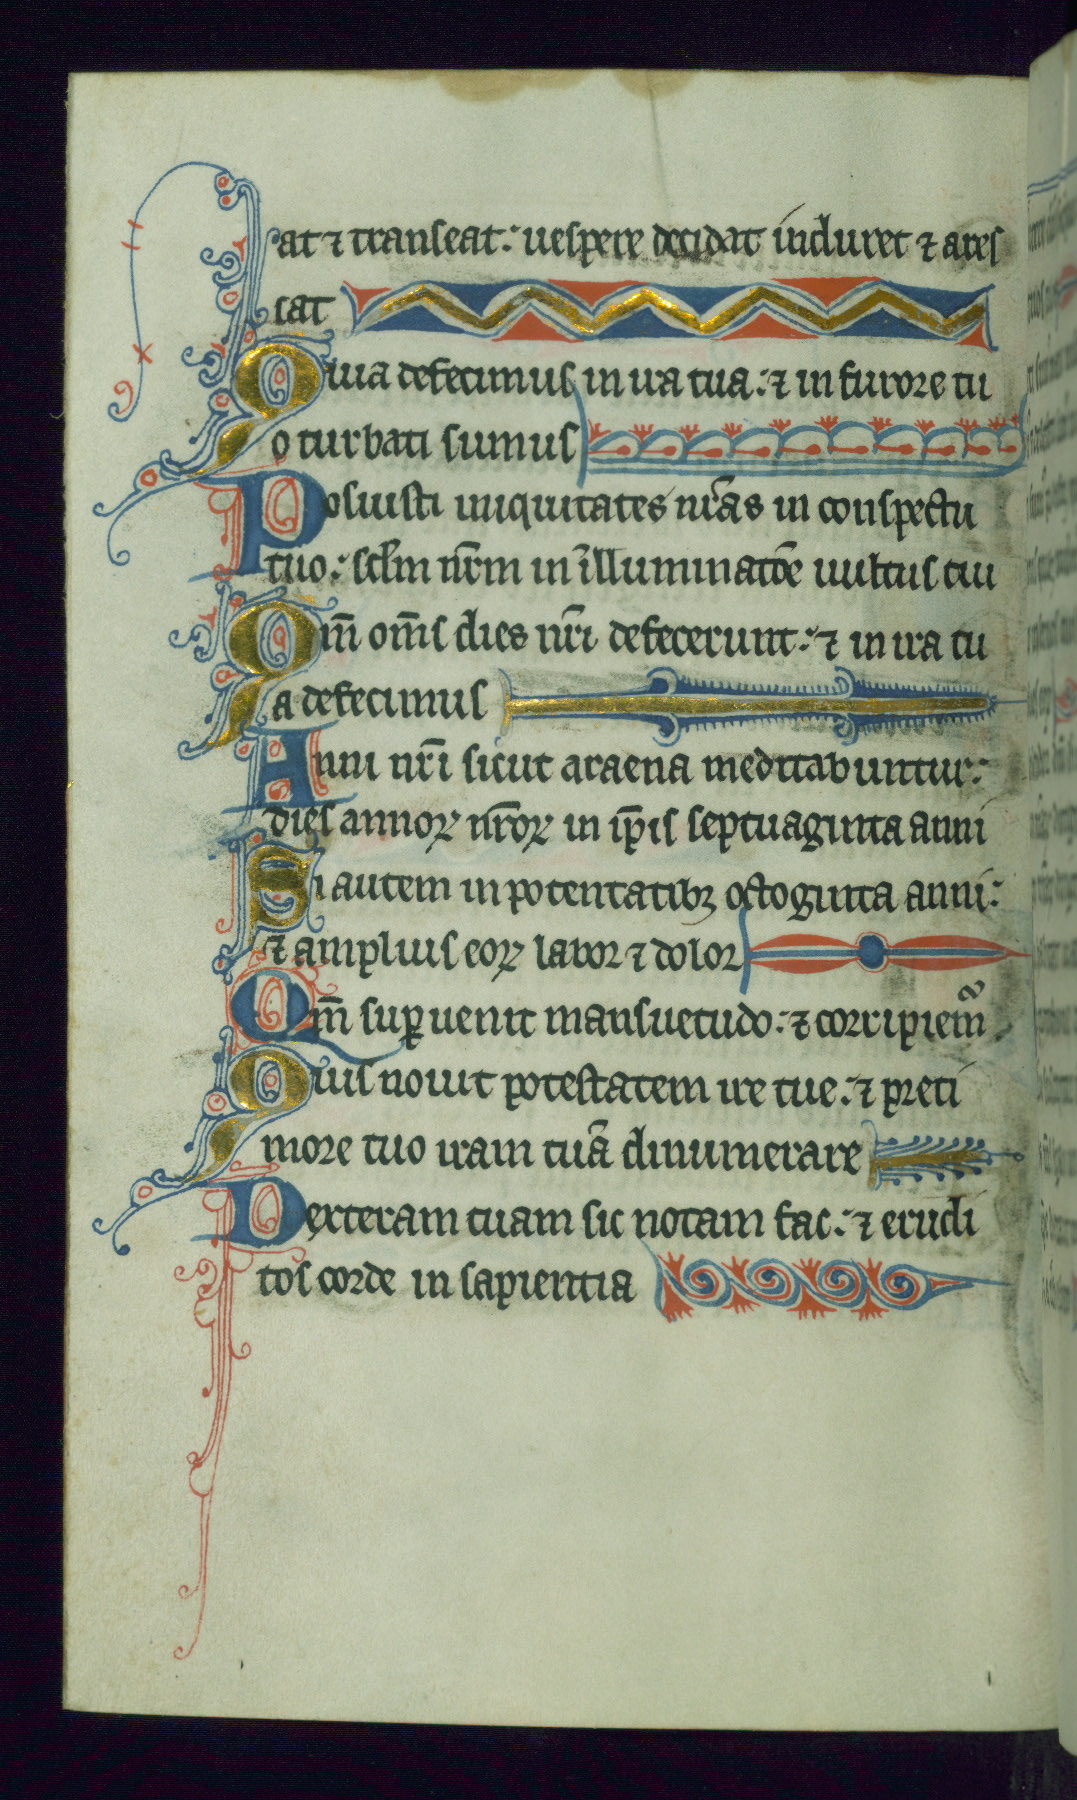 at ⁊ transeat: uespere decidat induret ⁊ ares
cat
Quia defecimus in ira tua: ⁊ in furore tu
o turbati sumus
Posuisti iniquitates nr̄as in conspectu
tuo: sclm̄ nr̄m in illuminatōe uultus tui
Qm̄ om̄s dies nr̄i defecerunt: ⁊ in ira tu
a defecimus
Anni nr̄i sicut araena meditabuntur:
dies annoꝝ nr̄oꝝ in ip̄is septuaginta anni
Si autem in potentatibꝫ octoginta anni:
⁊ amplius eoꝝ labor ⁊ dolor
Qm̄ suꝑuenit mansuetudo: ⁊ corripiem̄
Quis nouit potestatem ire tue: ⁊ preti
more tuo iram tuā dinumerare
Dexteram tuam sic notam fac: ⁊ erudi
tos corde in sapientia